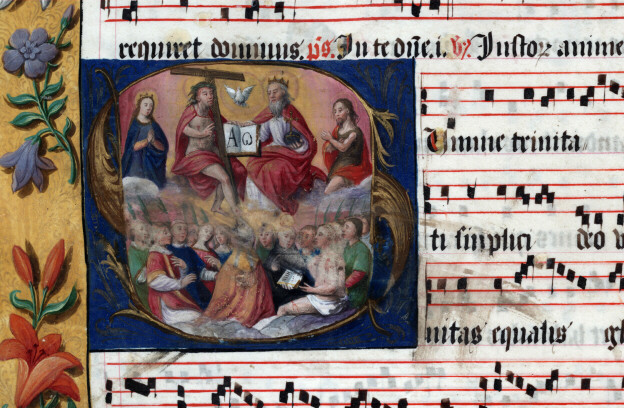 requiret dominus. ps. In te dne.i. V. Justor anime
A ω
Umme trinita
ti simplici deo v
uinitas equalis gl